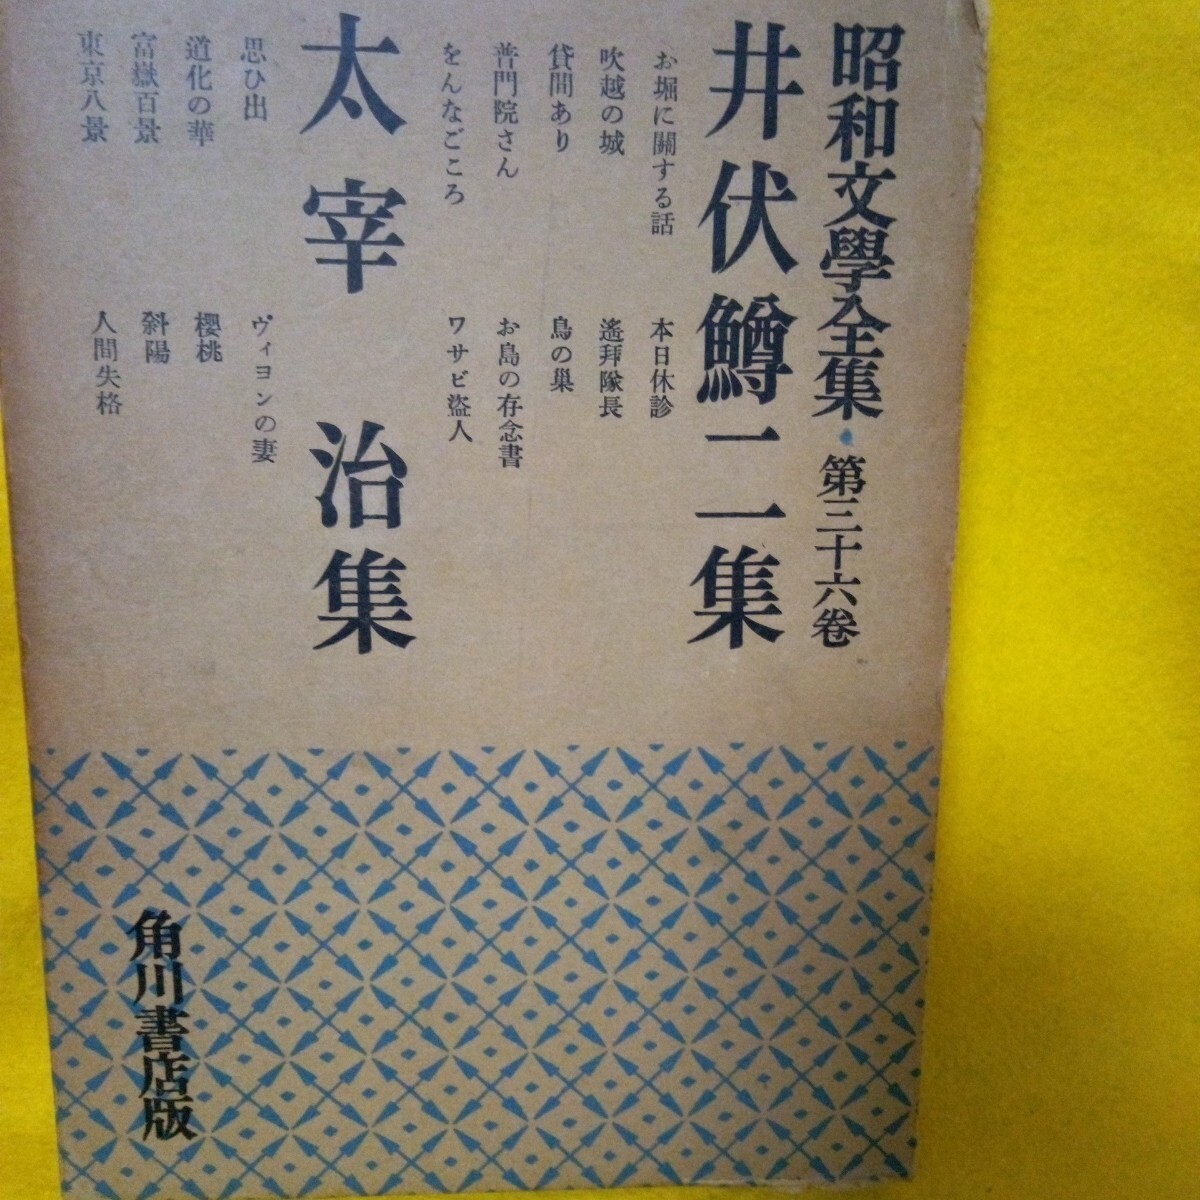 昭和文學全集・第三十六卷
井伏鱒二集
お堀に關する話
吹越の城
貸間あり
普門院さん
をんなごころ
本日休診
遙拜隊長
鳥の巢
お島の存念書
ワサビ盜人
太宰治集
思ひ出
道化の華
富嶽百景
東京八景
ヴィヨンの妻
櫻桃
斜陽
人間失格
角川書店版